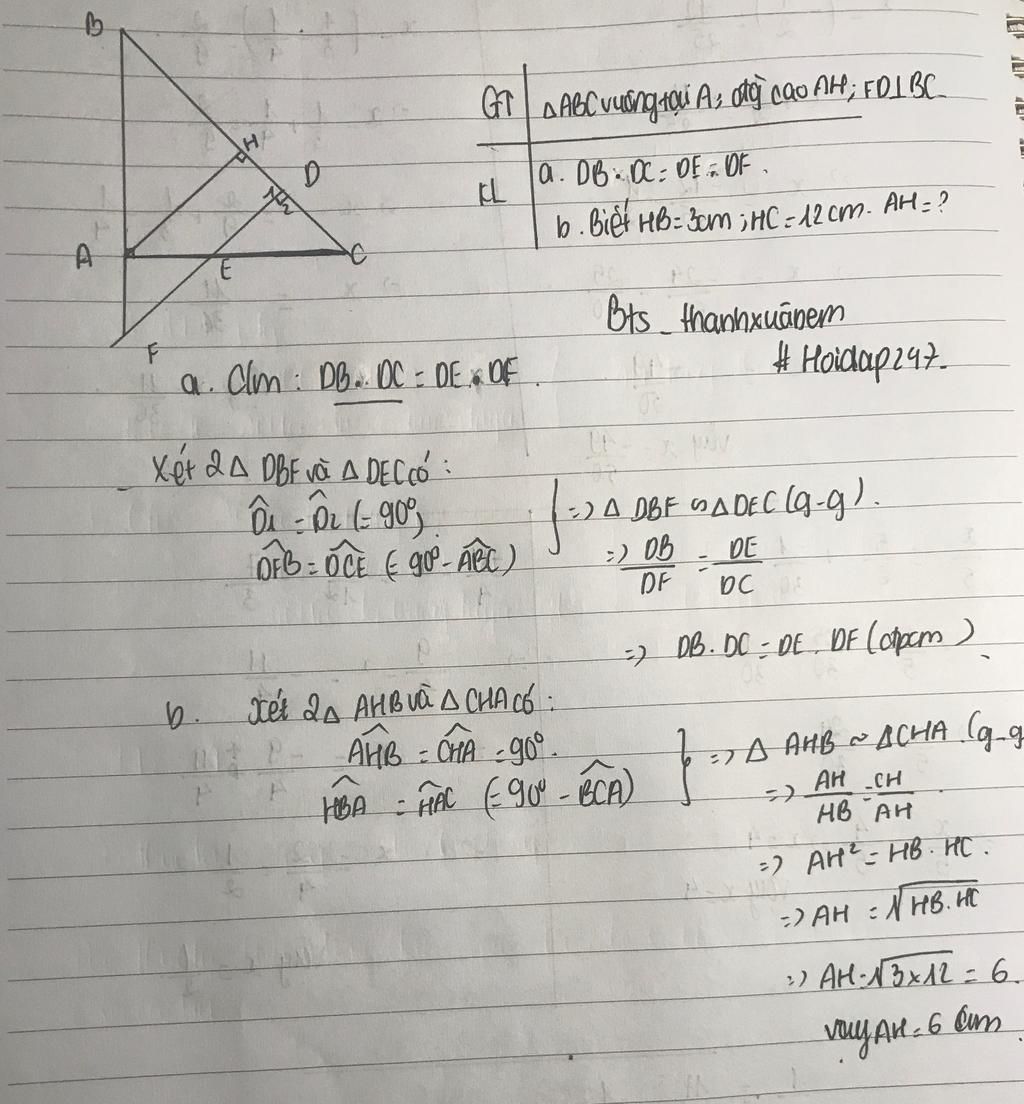 B
H
D
1 2
A
E
C
F
GT
ΔABC vuông tại A; đg̀ cao AH; FD⊥BC
KL
a. DB . DC = DE . DF.
b. Biết HB = 3cm; HC = 12cm. AH = ?
Bts_thanhxuânem
# Hoidap247.
a. C/m: DB . DC = DE . DF.
Xét 2Δ DBF và Δ DEC có:
D̂1 = D̂2 (= 90°)
DFB = DCE (= 90° - ABC)
} => Δ DBF ∽ Δ DEC (g-g).
=> DB/DF = DE/DC
=> DB . DC = DE . DF (đpcm)
b. Xét 2Δ AHB và Δ CHA có:
AHB = CHA = 90°.
HBA = HAC (= 90° - BCA)
} => Δ AHB ~ ΔCHA (g-g
=> AH/HB = CH/AH
=> AH² = HB . HC.
=> AH = √HB.HC
=> AH = √3x12 = 6.
vậy AH = 6 cm